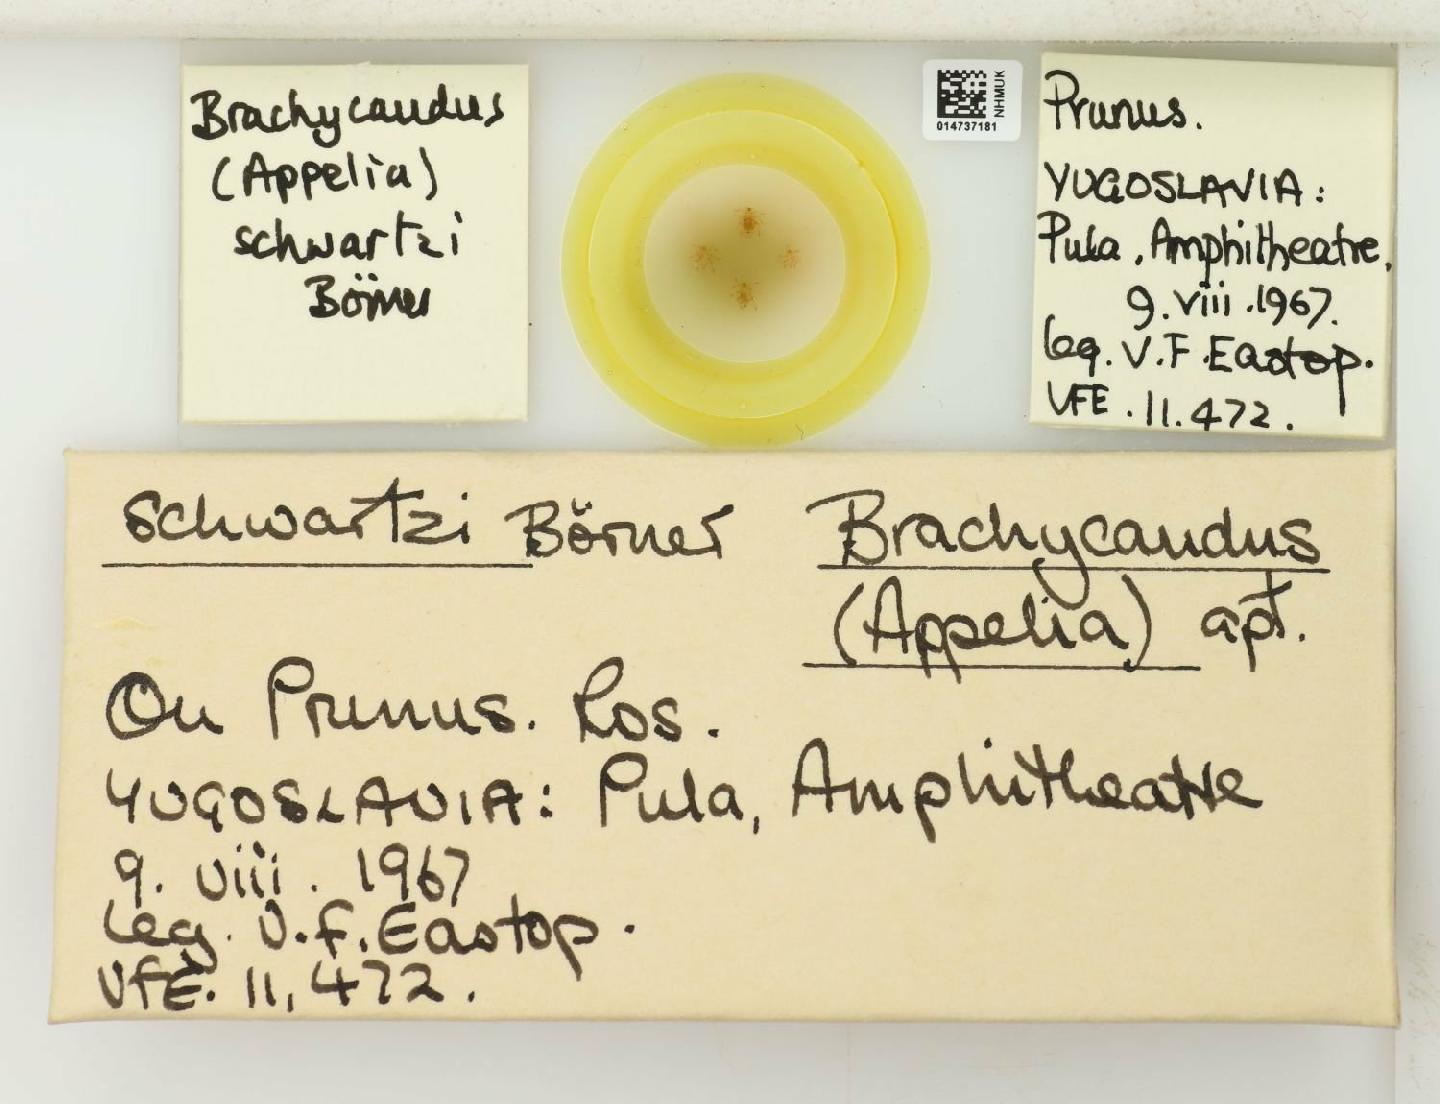 Brachycaudus
(Appelia)
schwartzi
Börner
NHMUK
014737181
Prunus.
YUGOSLAVIA:
Pula, Amphitheatre.
9.viii.1967.
leg. V.F. Eastop.
VFE. 11.472.
schwartzi Börner Brachycaudus
(Appelia) apt.
On Prunus. Ros.
YUGOSLAVIA: Pula, Amphitheatre
9. viii. 1967
leg. V.F. Eastop.
VFE. 11,472.